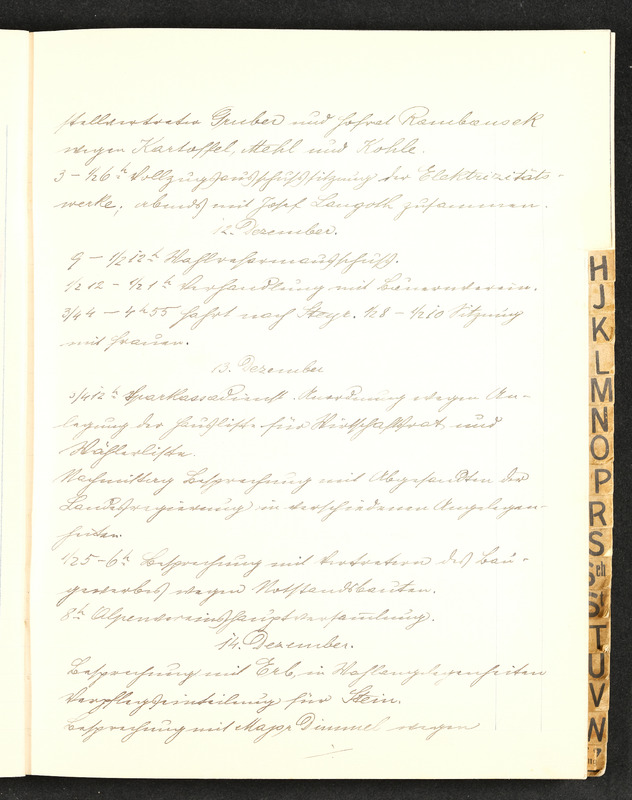 stellvertreter Gruber und Hofrat Rambausek
wegen Kartoffel, Mehl und Kohle.
3 – ½6 h Vollzugsausschußsitzung der Elektrizitäts-
werke; abends mit Josef Langoth zusammen.
12. Dezember.
9 – 1/2 12 h Wahlreformausschuß.
½ 12 – ½ 1 h Verhandlung mit Bauernverein.
3/4 4 – 4 h 55 Fahrt nach Steyr. ½8 – ½10 Sitzung
mit Frauen.
13. Dezember
3/4 12 h Sparkassadienst. Anordnung wegen An-
legung der Hausliste für Wirtschaftsrat und
Wählerliste.
Nachmittag Besprechung mit Abgesandten der
Landesregierung in verschiedenen Angelegen-
heiten.
½5 – 6 h Besprechung mit Vertretern des Bau-
gewerbes wegen Notstandsbauten.
8 h Alpenvereinshauptversammlung.
14. Dezember.
Besprechung mit Erb, in Wahlangelegenheiten
Verpflegseinteilung für Stein.
Besprechung mit Major Dimmel wegen
H
J
K
L
M
N
O
P
R
S
Sch
St
T
U
V
W